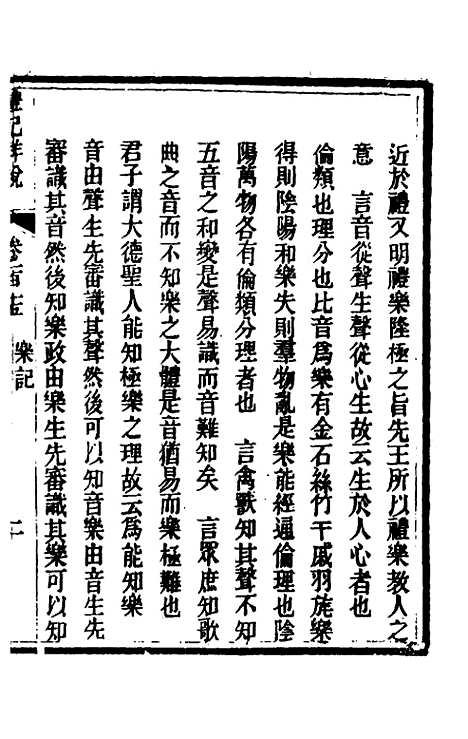 近於禮又明禮樂隆極之旨先王所以禮樂教人之
意　言音從聲生聲從心生故云生於人心者也
倫類也理分也比音爲樂有金石絲竹干戚羽旄樂
得則陰陽和樂失則羣物亂是樂能經通倫理也陰
陽萬物各有倫類分理者也　言禽獸知其聲不知
五音之和變是聲易識而音難知矣　言眾庶知歌
曲之音而不知樂之大體是音猶易而樂極難也
君子謂大德聖人能知極樂之理故云爲能知樂
音由聲生先審識其聲然後可以知音樂由音生先
審識其音然後知樂政由樂生先審識其樂可以知
禮記詳說　卷百　樂記　二